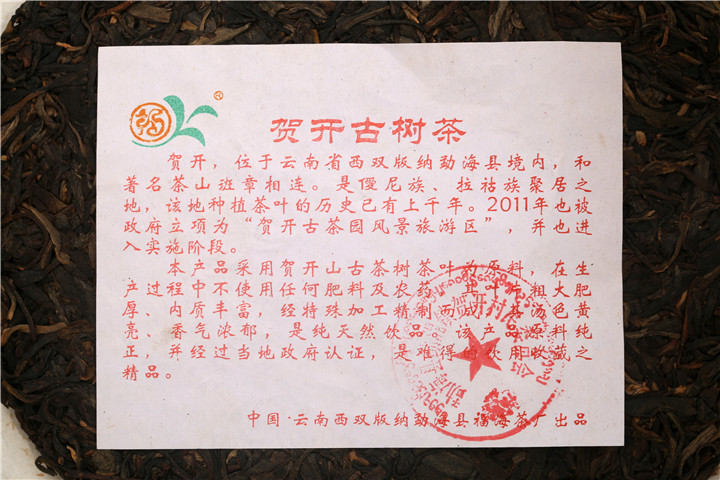 贺开古树茶
贺开，位于云南省西双版纳勐海县境内，和
著名茶山班章相连。是僾尼族、拉祜族聚居之
地，该地种植茶叶的历史已有上千年。2011年也被
政府立项为“贺开古茶园风景旅游区”，并也进
入实施阶段。
本产品采用贺开山古茶树茶叶为原料，在生
产过程中不使用任何肥料及农药，其叶片粗大肥
厚、内质丰富，经特殊加工精制而成，其汤色黄
亮、香气浓郁，是纯天然饮品。该产品原料纯
正，并经过当地政府认证，是难得的饮用收藏之
精品。
中国·云南西双版纳勐海县福海茶厂出品